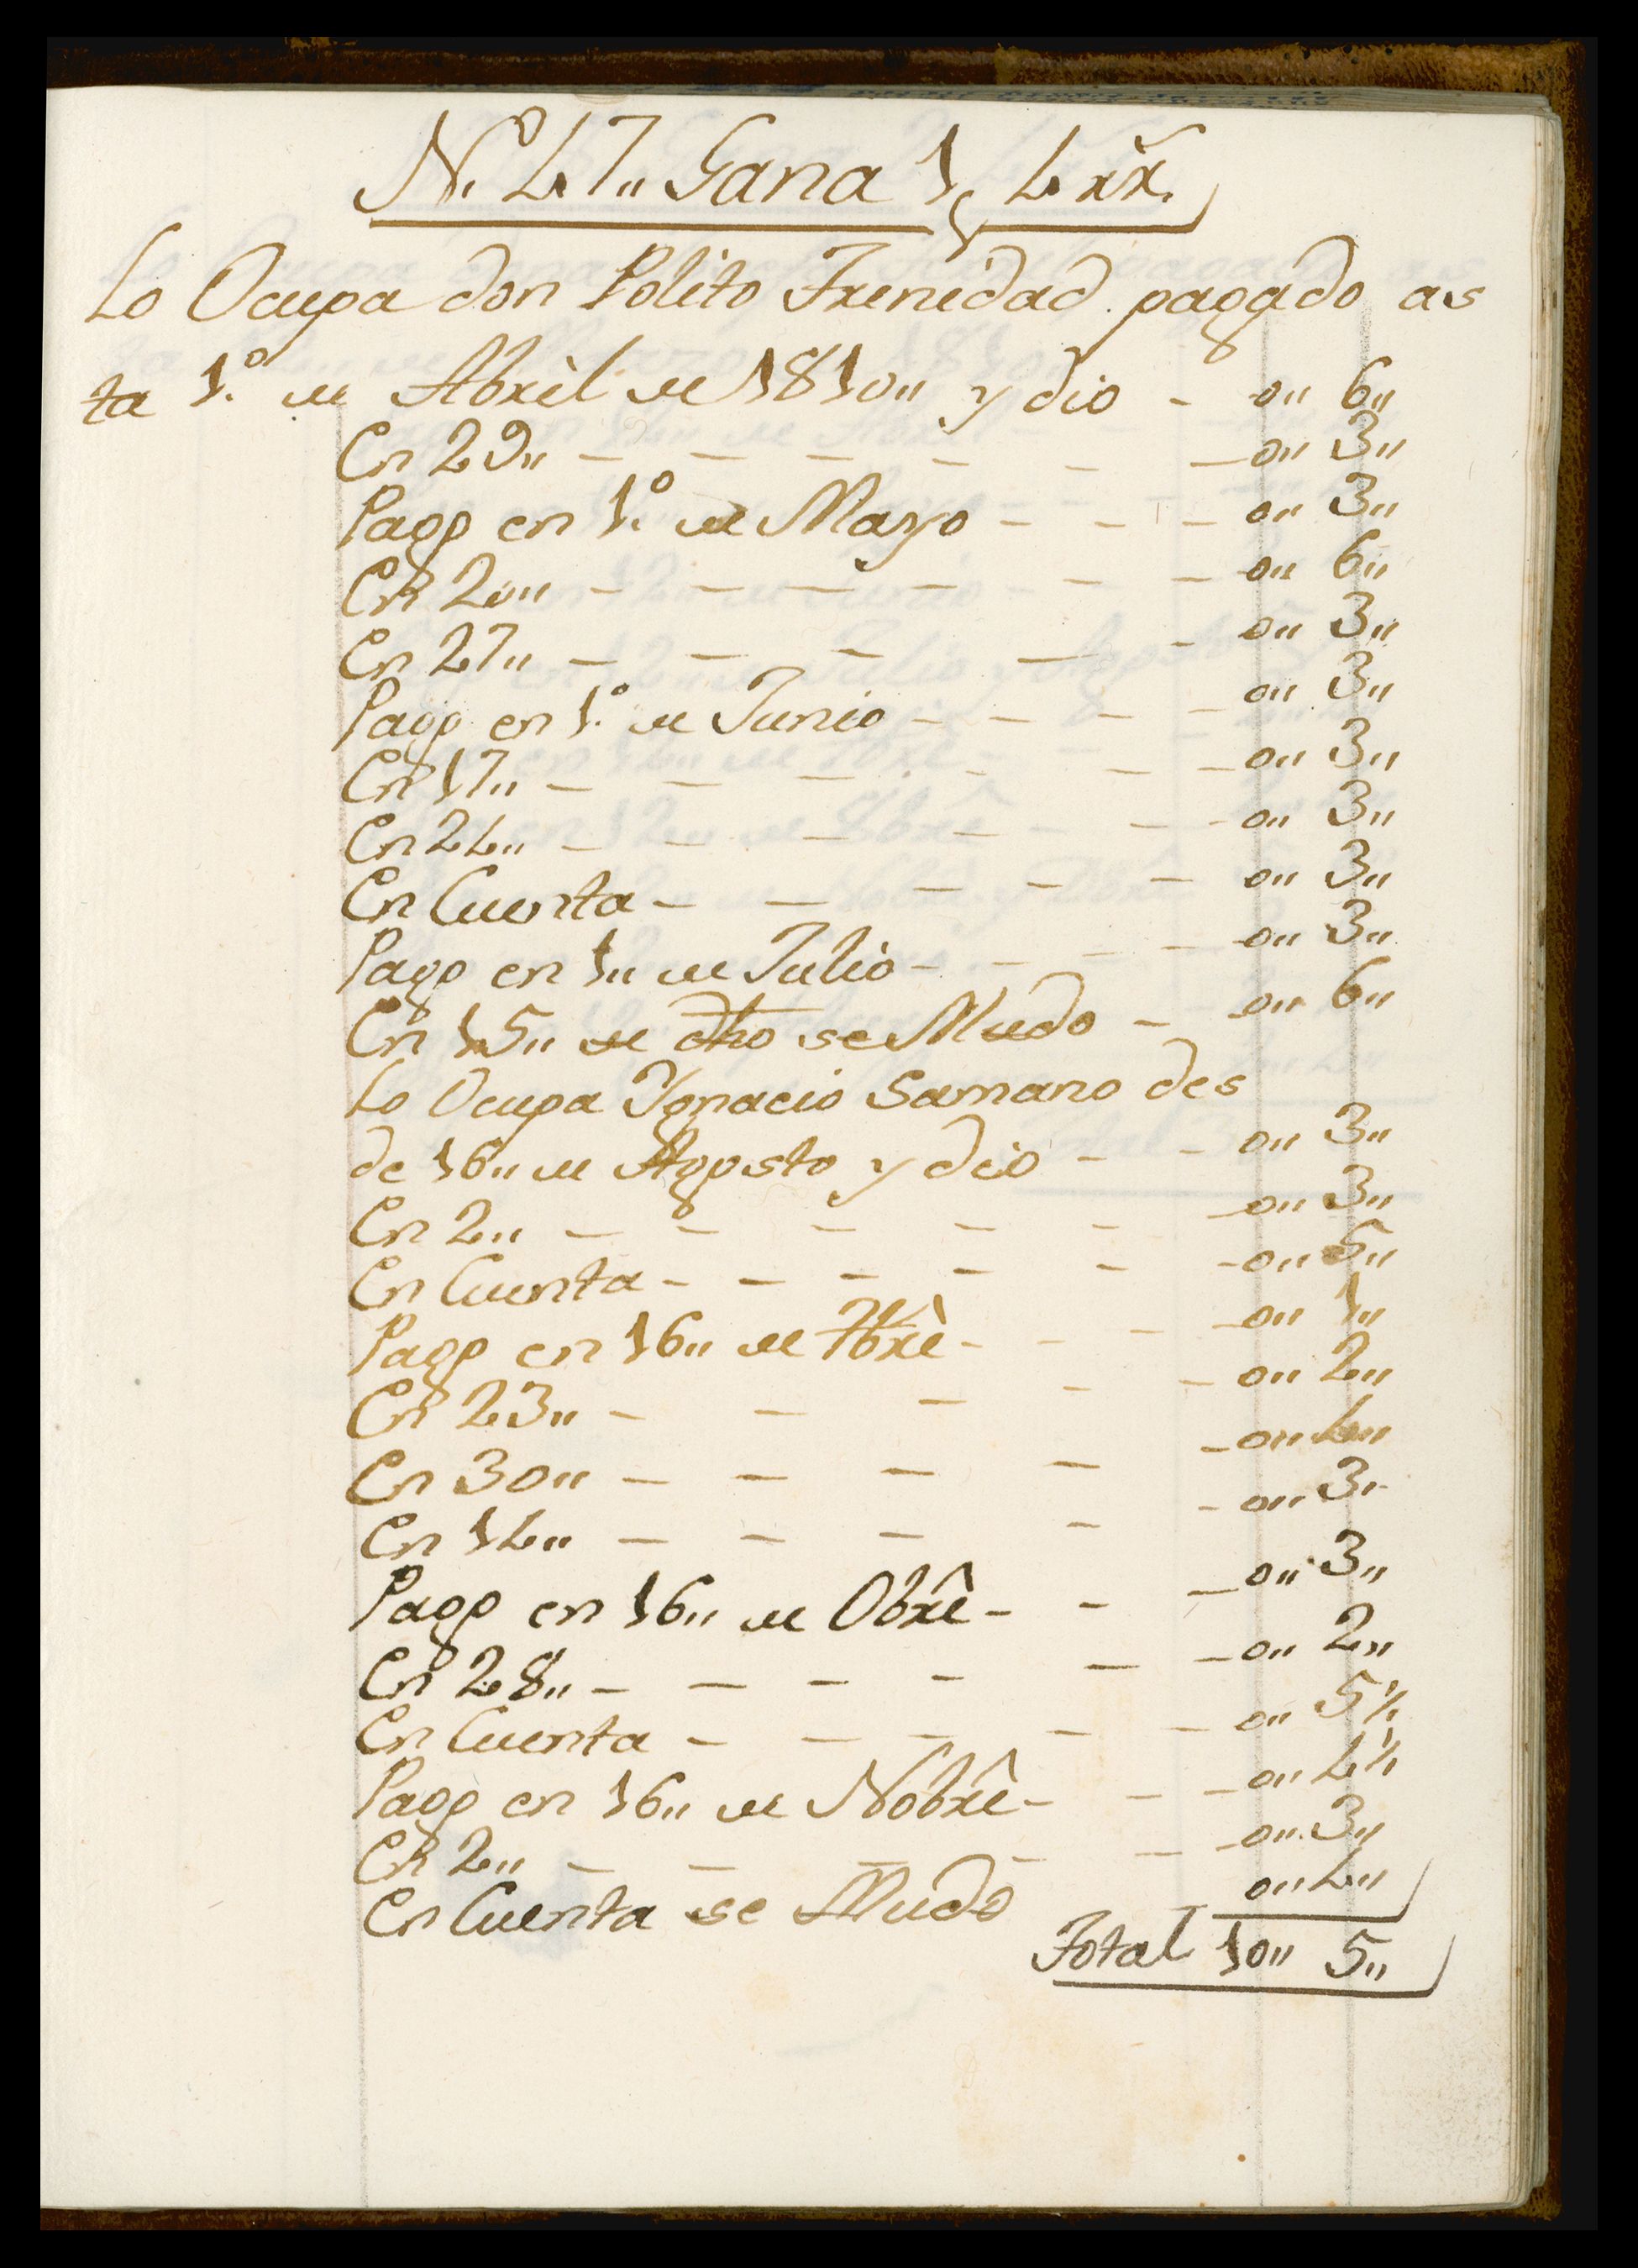 N.º 47,, Gana 1 ps 4 rr.
Lo Ocupa don Polito Trenidad pagado as
ta 1.º de Abril de 1810,, y dio - 0,, 6,,
En 29,, - - - - - - 0,, 3,,
Pago en 1.º de Mayo - - - 0,, 3,,
En 20,, - - - - - - 0,, 6,,
En 27,, - - - - - 0,, 3,,
Pago en 1.º de Junio - - - - 0,, 3,,
En 17,, - - - - - - 0,, 3,,
En 24,, - - - - - - 0,, 3,,
En Cuenta - - - - - 0,, 3,,
Pago en 1,, de Julio - - - - 0,, 3,,
En 15,, de dho se Mudo - 0,, 6,,
Lo Ocupa Ygnacio Samano des
de 16,, de Agosto y dio - - 0,, 3,,
En 2,, - - - - - - 0,, 3,,
En Cuenta - - - - - - 0,, 5,,
Pago en 16,, de 7bre - - - - 0,, 1,,
En 23,, - - - - - 0,, 2,,
En 30,, - - - - - 0,, 4,,
En 14,, - - - - - 0,, 3,,
Pago en 16,, de Obre - - - 0,, 3,,
En 28,, - - - - - - 0,, 2,,
En Cuenta - - - - - 0,, 5½
Pago en 16,, de Nobre - - - 0,, 4½
En 2,, - - - - - - 0,, 3,,
En Cuenta se Mudo 0,, 4,,
Total 10,, 5,,